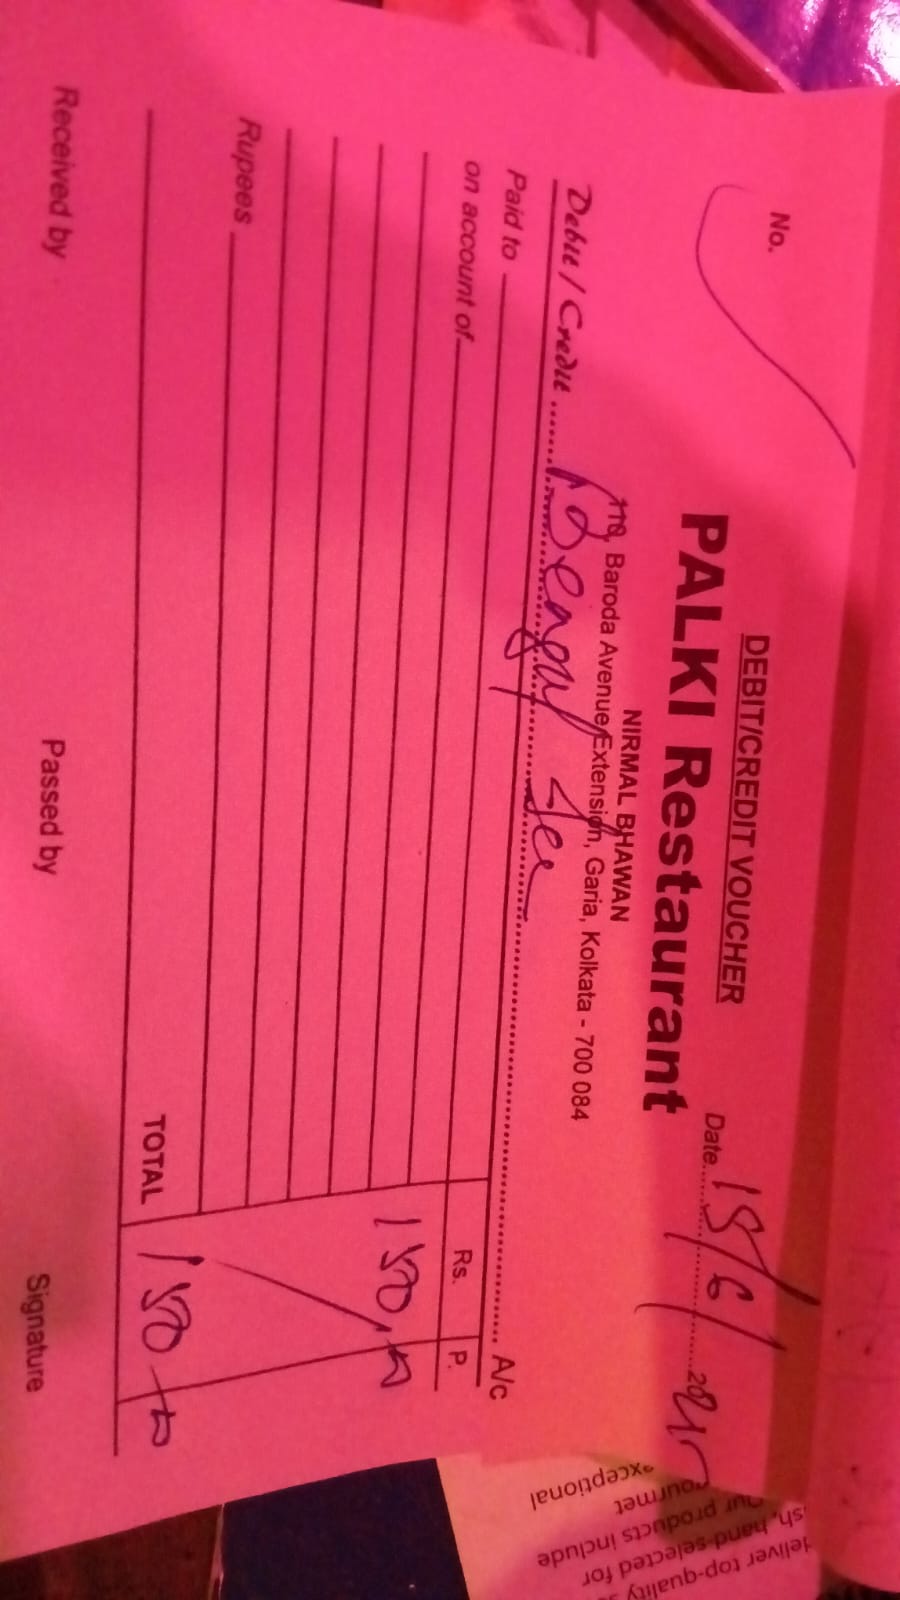 DEBIT/CREDIT VOUCHER
No.
PALKI Restaurant
Date 15/6/
NIRMAL BHAWAN
Baroda Avenue Extension, Garia, Kolkata - 700 084
Debit / Credit Bengal A/c
Paid to
on account of Rs. P.
150
Rupees
TOTAL 150
Received by Passed by Signature
deliver top-quality
hand-selected for
products include
exceptional